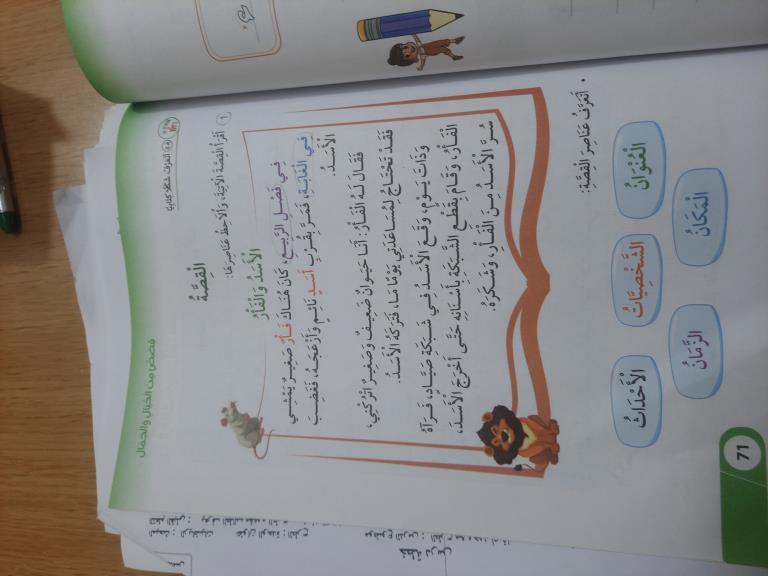 قصص من الخيال والجمال
أَتَعَرَّفُ شَكْلًا كِتَابِيًّا
الْقِصَّةُ
١ أَقْرَأُ الْقِصَّةَ الْآتِيَةَ، وَأُلَاحِظُ عَنَاصِرَهَا:
الْأَسَدُ وَالْفَأْرُ
فِي فَصْلِ الرَّبِيعِ، كَانَ هُنَاكَ فَأْرٌ صَغِيرٌ يَمْشِي
فِي الْغَابَةِ، فَمَرَّ بِقُرْبِ أَسَدٍ نَائِمٍ وَأَزْعَجَهُ، فَغَضِبَ
الْأَسَدُ.
فَقَالَ لَهُ الْفَأْرُ: أَنَا حَيَوَانٌ ضَعِيفٌ وَصَغِيرٌ اتْرُكْنِي،
فَقَدْ تَحْتَاجُ لِمُسَاعَدَتِي يَوْمًا مَا، فَتَرَكَهُ الْأَسَدُ.
وَذَاتَ يَوْمٍ، وَقَعَ الْأَسَدُ فِي شَبَكَةِ صَيَّادٍ، فَرَآهُ
الْفَأْرُ، وَقَامَ بِقَطْعِ الشَّبَكَةِ بِأَسْنَانِهِ حَتَّى أَخْرَجَ الْأَسَدَ،
سُرَّ الْأَسَدُ مِنَ الْفَأْرِ، وَشَكَرَهُ.
• أَتَعَرَّفُ عَنَاصِرَ الْقِصَّةِ:
الْعُنْوَانُ
الشَّخْصِيَّاتُ
الْأَحْدَاثُ
الْمَكَانُ
الزَّمَانُ
71